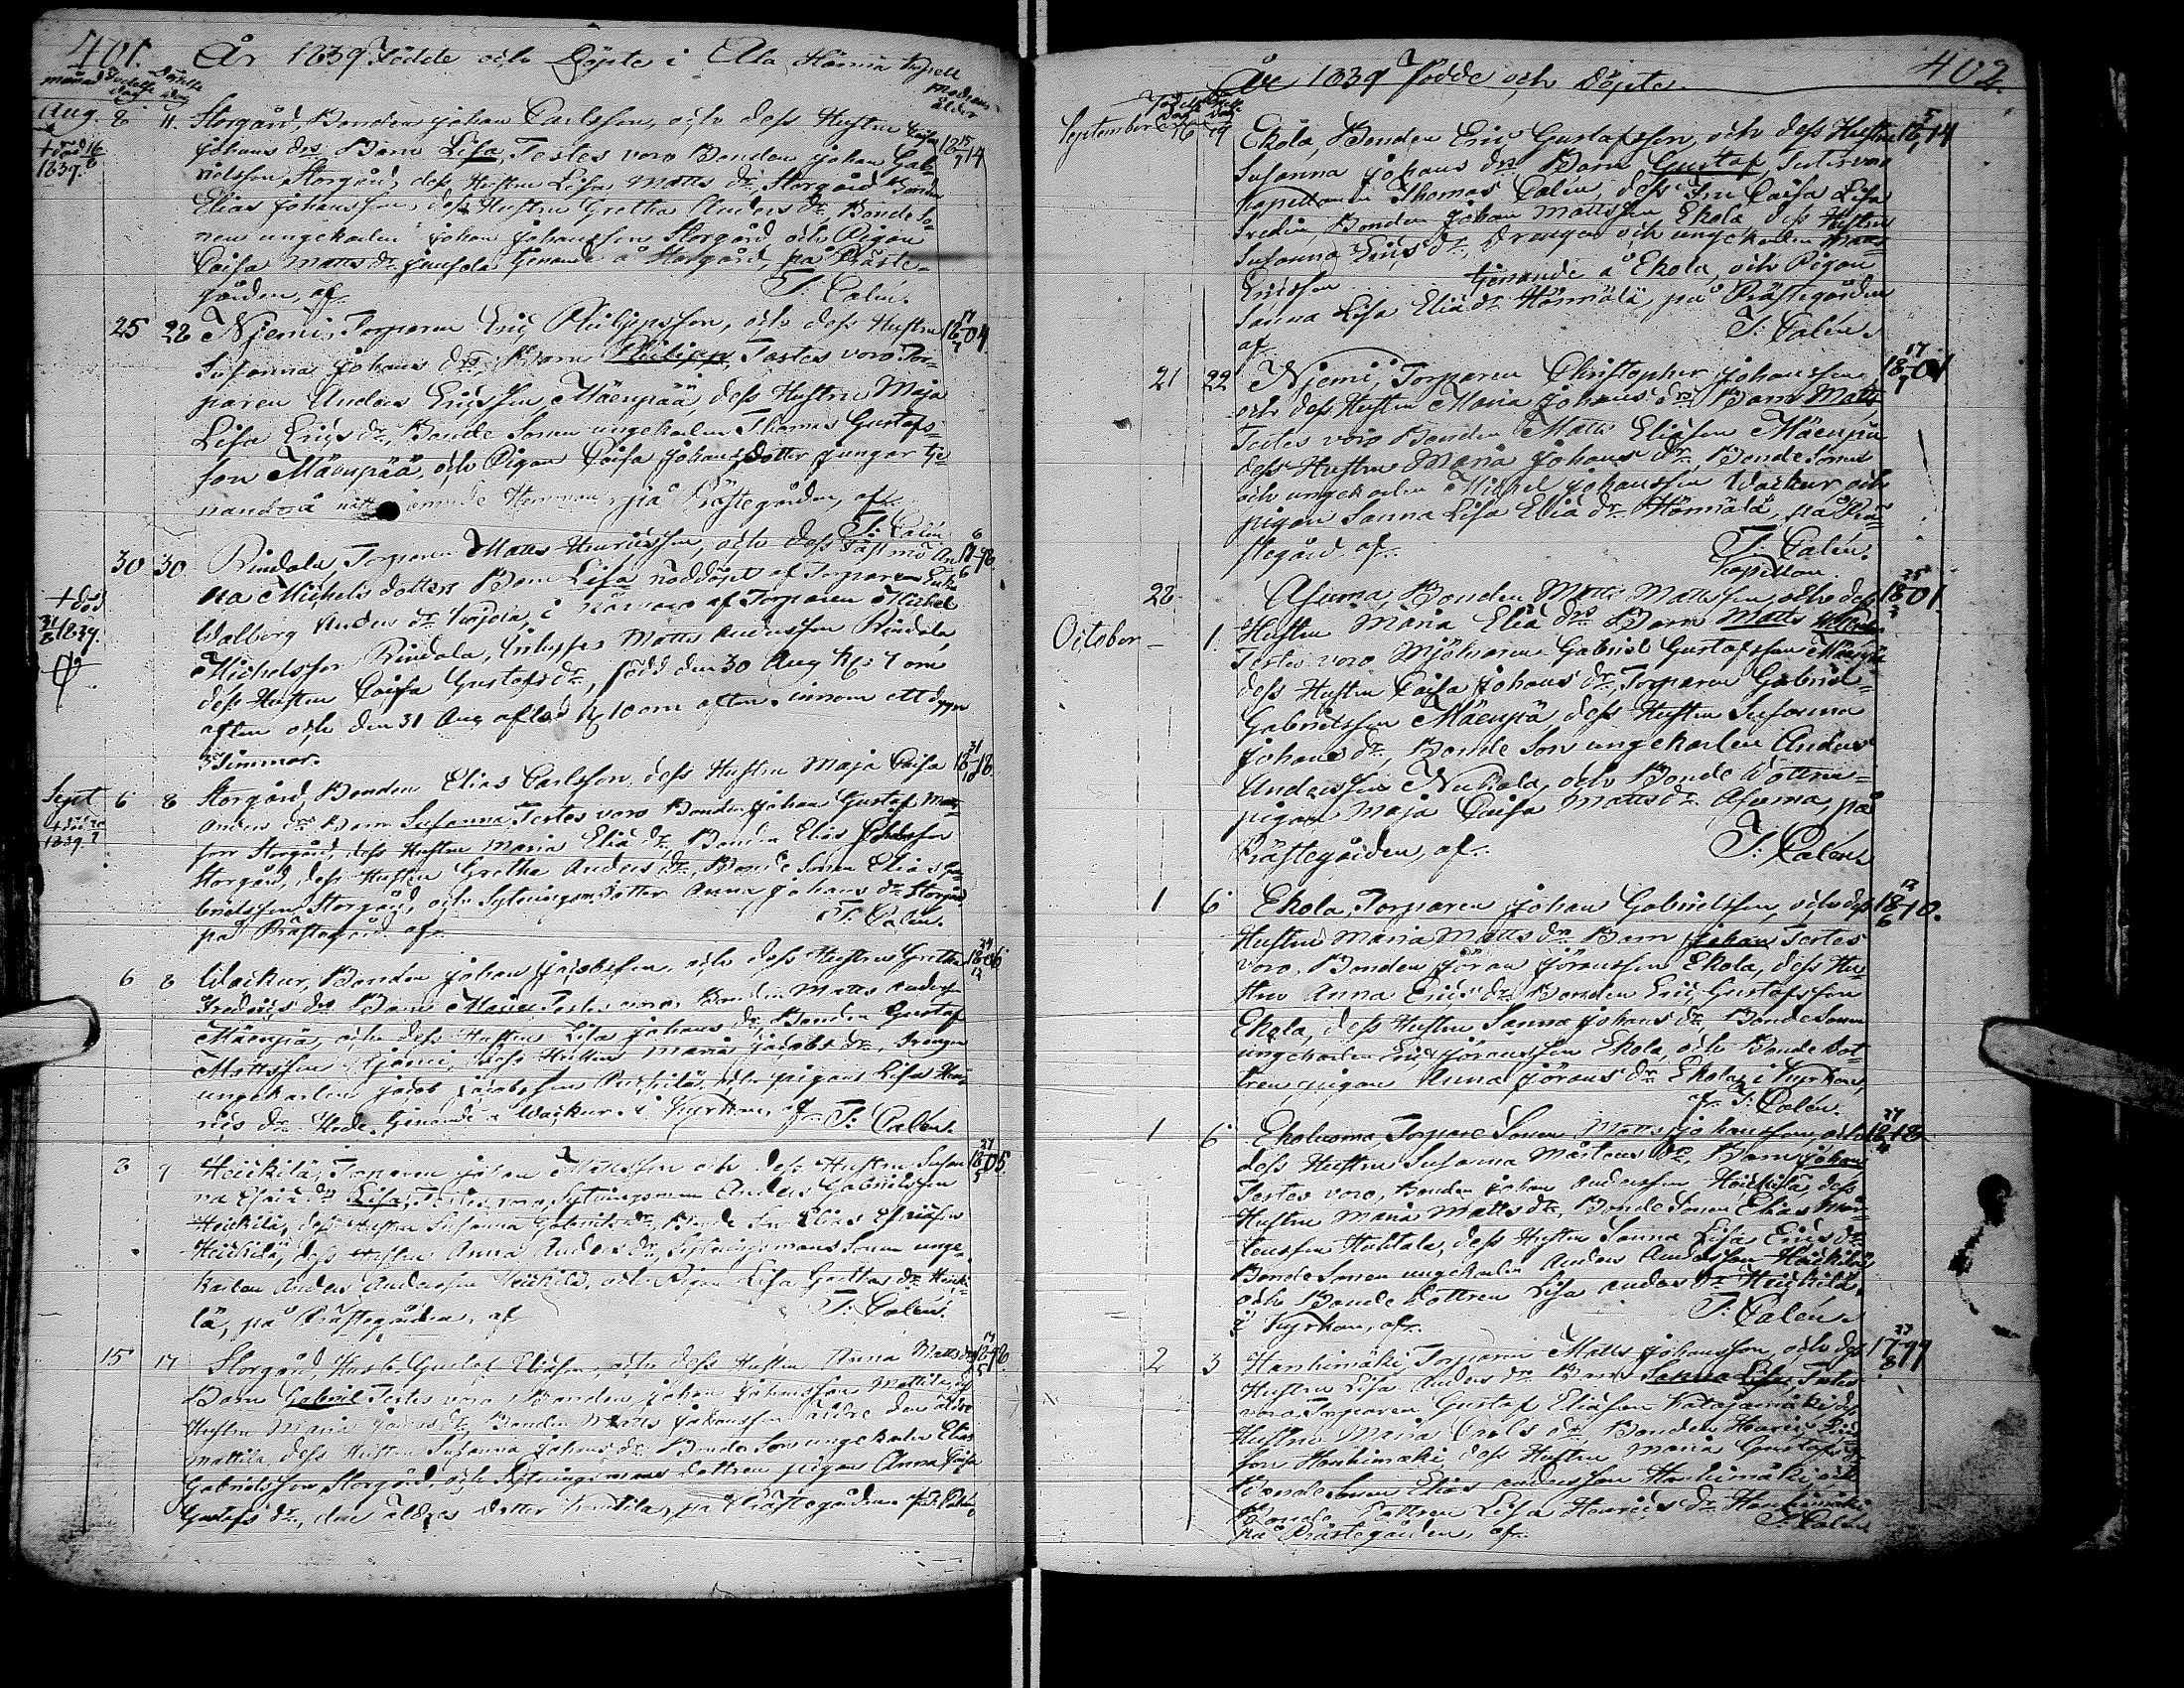 401. År 1839 Födde och Döpte i Ala Härmä kapell
månad Födelse dag Döpelse dag Modrens ålder
Aug. 8 11. Storgård, Bonden Johan Carlsson, och dess Hustru Caisa 18 15/7 14
+ död 16/8 1839. Johans drs Barn Lisa, Testes voro Bonden Johan Gab-
rielsson Storgård, dess Hustru Lisa Matts dr. Storgård Bonden
Elias Johansson, dess Hustru Gretha Anders dr, Bonde So-
nen ungekarlen Johan Johansson Storgård och Pigan
Caisa Matts dr. tjenande å Storgård, på Präste-
gården, af.
T: Calén.
25 28 Njemi, Torparen Eric Philippsson, och dess Hustru 18 17/7 04.
Susanna Johans drs Barn Philipp, Testes voro Tor-
paren Anders Ericsson Mäenpää, dess Hustru Maja
Lisa Erics dr, Bonde Sonen ungekarlen Thomas Gustafs-
son Mäenpää, och Pigan Caisa Johans Dotter junger tje-
nande å Hemman, på Prästegården, af.
T: Calén
30 30. Rindala, Torparen Matts Henricsson, och dess Fästmö An 17 6/6 98.
na Michels dotters Barn Lisa nöddöpt af Torpare Enk.
+ död Walborg Anders dr, i närvaro af Torparen Michel
31/8 1839. Michelsson Rindala, Matts Andersson Rindala
dess Hustru Caisa Gustafs dr, född den 30 Aug kl: 7 om
aften och den 31 Aug afled kl 10 om aften. innom ett dygn
3 Timmar.
Sept 6 8 Storgård, Bonden Elias Carlsson, dess Hustru Maja Caisa 18 31/10 18.
+ död 20/9 1839. Anders drs Barn Susanna, Testes voro Bonden Johan Gustaf Mats-
son Storgård, dess Hustru Maria Elia dr, Bonden Elias Johansson
Storgård, dess Hustru Gretha Anders dr, Bonde Sonen Elias Ga-
brielsson Storgård, och Sytningsm. Dotter Anna Johans dr Storgård
på Prästegård. af.
T: Calén.
6 8 Wäckur, Bonden Johan Jacobsson, och dess Hustru Gretha 18 24/12 06
Fredrics drs Barn Maria Testes voro, Bonden Matts Anders
Mäenpä, och dess Hustru Lisa Johans dr, Bonden Gustaf
Mattsson Njemi, dess Hustru Maria Jacobs dr, Drengen
ungekarlen Jacob Jacobsson, och pigan Lisa Hen-
rics dr. tjenande å Wäckur, i Kyrkan, af T: Calén.
8 9 Heickilä, Torparen Johan Mattsson och dess Hustru Susan 18 27/3 05.
na drs Lisa, Testes voro, Sytningsman Anders Gabrielsson
Heickilä, dess Hustru Susanna Gabriels dr, Bonde Son Elias
Heickilä, dess Hustru Anna Anders dr, Sytningsmans Sonen unge
karlen Anders Andersson Heickilä, och Pigan Lisa Gretha dr Heicki
lä, på Prästegården, af
T: Calén.
15 17 Storgård, Gustaf Eliasson, och dess Hustru Anna Matts drs
Barn Gabriel Testes voro, Bonden Johan Johansson Mattila, dess
Hustru Maria dr, Bonden Matts Johansson äldre den äldre
Mattila, dess Hustru Susanna Johans dr, Bonde Son ungekarlen Elias
Gabrielsson Storgård, och Sytningsmans dottren pigan Anna Caisa
Gustafs dr, den äldres dotter, på Prästegården. af T: Calén
År 1839 Födde och Döpte. 402.
Födelse Dag Döpelse Dag
September 16 19 Ekola, Bonden Eric Gustafsson, och dess Hustru 18 5/7 14
Susanna Johans drs Barn Gustaf, Testes voro
Kapellanen Thomas Calén, dess Fru Caisa Lisa
Bonden Johan Mattsson Ekola, dess Hustru
Susanna Erics dr, Drengen och ungekarlen Matts
Ericsson tjenande å Ekola, och Pigan
Sanna Lisa Elia dr Hännälä, på Prästegården
af
T: Calén.
21 22 Njemi, Torparen Christopher Johansson 18 17/7 01
och dess Hustru Maria Johans drs Barn Matts
Testes voro Bonden Matts Eliasson Mäenpä
dess Hustru Maria Johans dr, Bonde Sonen
och ungekarlen Michel Johansson Wäckur, och
pigan Sanna Lisa Elia dr Hännälä, på Prä-
stegård, af.
T: Calén.
Kapellan.
28 Asuma, Bonden Matts Mattsson, och dess 18 25/3 01.
October 1. Hustru Maria Elia drs Barn Matts
Testes voro Mjölnaren Gabriel Gustafsson Mäenpä
dess Hustru Caisa Johans dr, Torparen Gabriel
Gabrielsson Mäenpä, dess Hustru Susanna
Johans dr, Bonde Son ungekarlen Anders
Andersson, och Bonde dottren
pigan Maja Caisa Matts dr. Asuma, på
Prästegården, af.
T: Calén
1 6 Ekola, Torparen Johan Gabrielsson, och dess 18 12/6 10.
Hustru Maria Matts drs Barn Johan Testes
voro, Bonden Jöran Jöransson Ekola, dess Hu-
stru Anna Erics dr, Bonden Eric Gustafsson
Ekola, dess Hustru Sanna Johans dr, Bonde Sonen
ungekarlen Eric Jöransson Ekola, och Bonde Dot-
tren pigan Anna Jörans dr Ekola, i Kyrkan,
af T: Calén.
1 6 Ekoluoma, Torpare Sonen Matts Johansson, och 18 27/4 18
dess Hustru Susanna Mårtens drs, Barn Johan
Testes voro, Bonden Johan Andersson Heickilä, dess
Hustru Maria Matts dr, Bonde Sonen Elias Mår-
tensson Huhtala, dess Hustru Sanna Lisa Erics dr
Bonde Sonen ungekarlen Anders Andersson Heickilä
och Bonde Dottren Lisa Anders dr Heickilä
i Kyrkan, af.
T: Calén.
2 3 Hanhimäki, Torparen Matts Johansson, och dess 17 23/8 99
Hustru Lisa Anders drs Barn Sanna Lisa, Testes
voro, Torparen Gustaf Eliasson Katajamäki dess
Hustru Maria Carls dr, Bonden Henric
son Hanhimäki, dess Hustru Maria Gustafs dr
Bonde Sonen Elias Andersson Hanhimäki, och
Bonde Dottren Lisa Henrics dr Hanhimäki
på Prästegården, af.
T: Calén